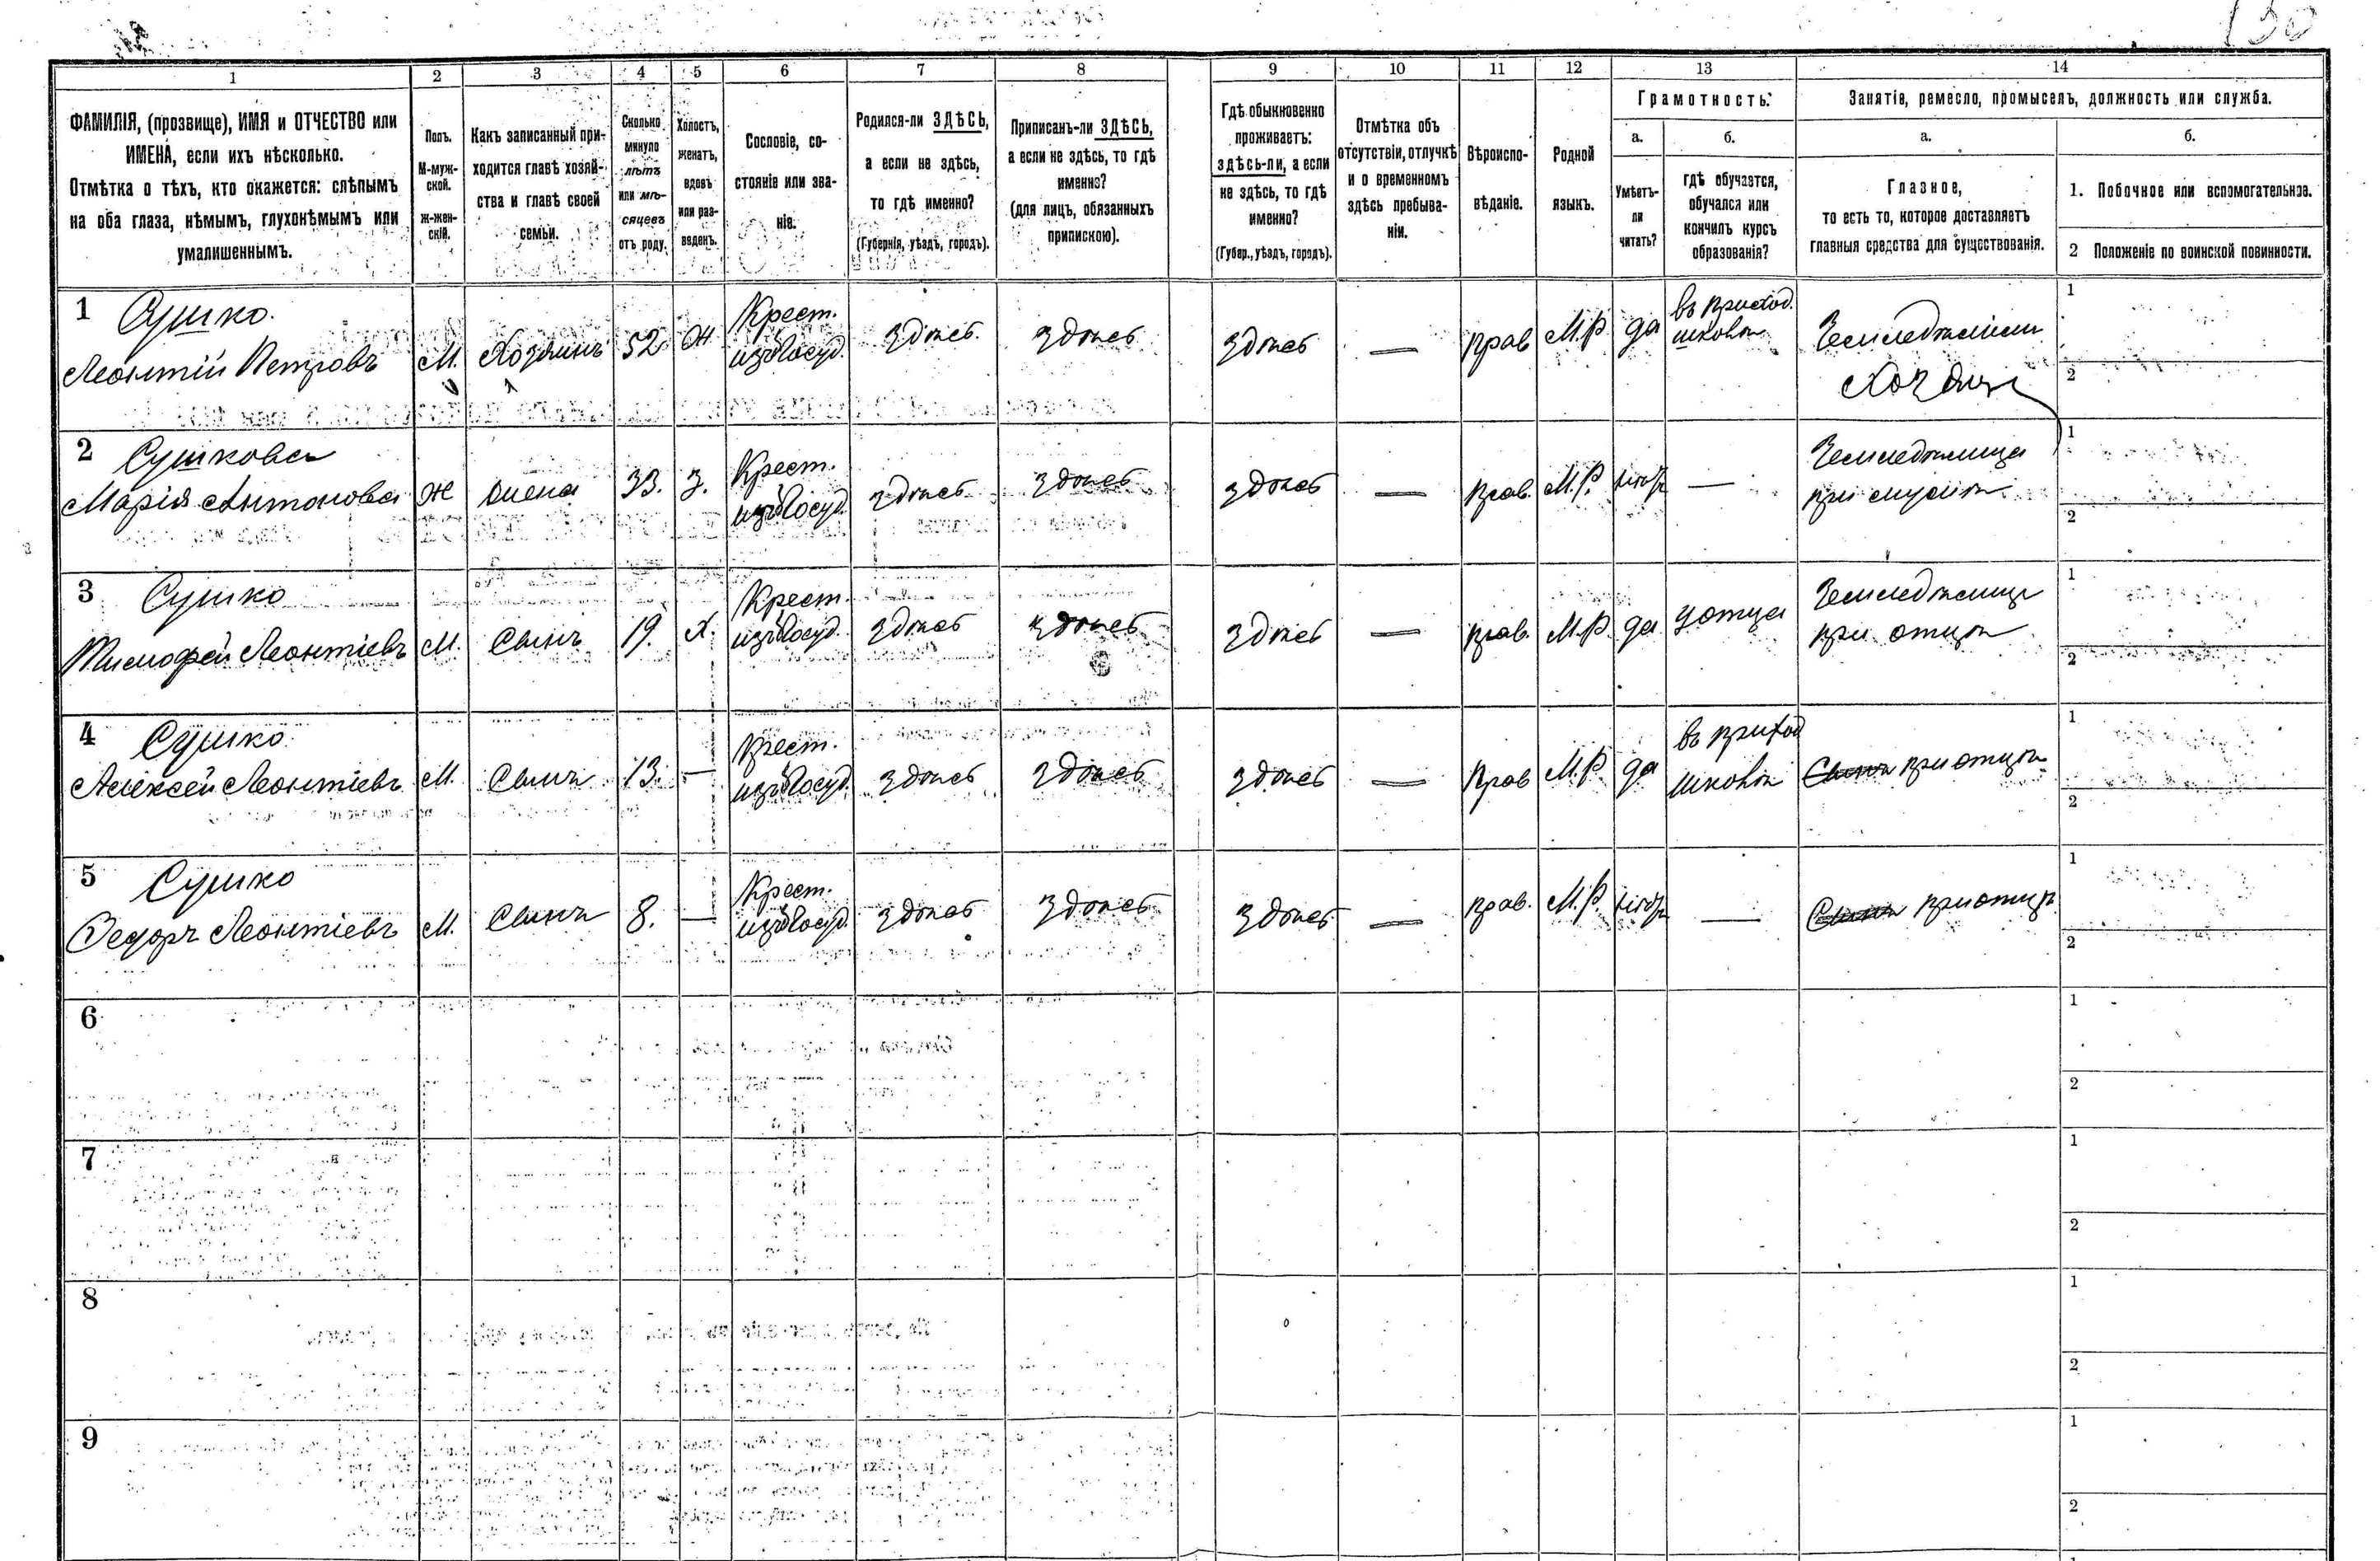 130
1 2 3 4 5 6 7 8 9 10 11 12 13 14
ФАМИЛІЯ, (прозвище), ИМЯ и ОТЧЕСТВО или
ИМЕНА, если ихъ нѣсколько.
Отмѣтка о тѣхъ, кто окажется: слѣпымъ
на оба глаза, нѣмымъ, глухонѣмымъ или
умалишеннымъ.
Полъ.
М-муж-
ской.
Ж-жен-
скій.
Какъ записанный при-
ходится главѣ хозяй-
ства и главѣ своей
семьи.
Сколько
минуло
лѣтъ
или мѣ-
сяцевъ
отъ роду.
Холостъ,
женатъ,
вдовъ
или раз-
веденъ.
Сословіе, со-
стояніе или зва-
ніе.
Родился-ли ЗДѢСЬ,
а если не здѣсь,
то гдѣ именно?
(Губернія, уѣздъ, городъ).
Приписанъ-ли ЗДѢСЬ,
а если не здѣсь, то гдѣ
именно?
(для лицъ, обязанныхъ
припискою).
Гдѣ обыкновенно
проживаетъ:
здѣсь-ли, а если
не здѣсь, то гдѣ
именно?
(Губер., уѣздъ, городъ).
Отмѣтка объ
отсутствіи, отлучкѣ
и о временномъ
здѣсь пребыва-
ніи.
Вѣроиспо-
вѣданіе.
Родной
языкъ.
Грамотность.
а.
Умѣетъ-
ли
читать?
б.
гдѣ обучается,
обучался или
кончилъ курсъ
образованія?
Занятіе, ремесло, промыселъ, должность или служба.
а.
Главное,
то есть то, которое доставляетъ
главныя средства для существованія.
б.
1. Побочное или вспомогательное.
2 Положеніе по воинской повинности.
1 Сушко. Крест. въ приход. 1
Леонтій Петровъ М. Хозяинъ 52 Ж изъ Госуд. Здѣсь Здѣсь Здѣсь — Прав М.Р. да школѣ
Хозяин 2
2 Сушкова Крест. 1
Марія Антонова Ж жена 33. З. изъ Госуд. Здѣсь Здѣсь Здѣсь — Прав. М.Р. нѣтъ — при мужѣ 2
3 Сушко Крест. 1
Тимофей Леонтіевъ М. Сынъ 19. Х. изъ Госуд. Здѣсь Здѣсь Здѣсь — Прав. М.Р. да у отца при отцѣ 2
4 Сушко Крест. въ приход 1
Алексей Леонтіевъ М. Сынъ 13. — изъ Госуд. Здѣсь Здѣсь Здѣсь — Прав М.Р. да школѣ Сынъ при отцѣ 2
5 Сушко Крест. 1
Федоръ Леонтіевъ М. Сынъ 8. — изъ Госуд. Здѣсь Здѣсь Здѣсь — Прав. М.Р. нѣтъ — Сынъ при отцѣ 2
6 1
2
7 1
2
8 1
2
9 1
2